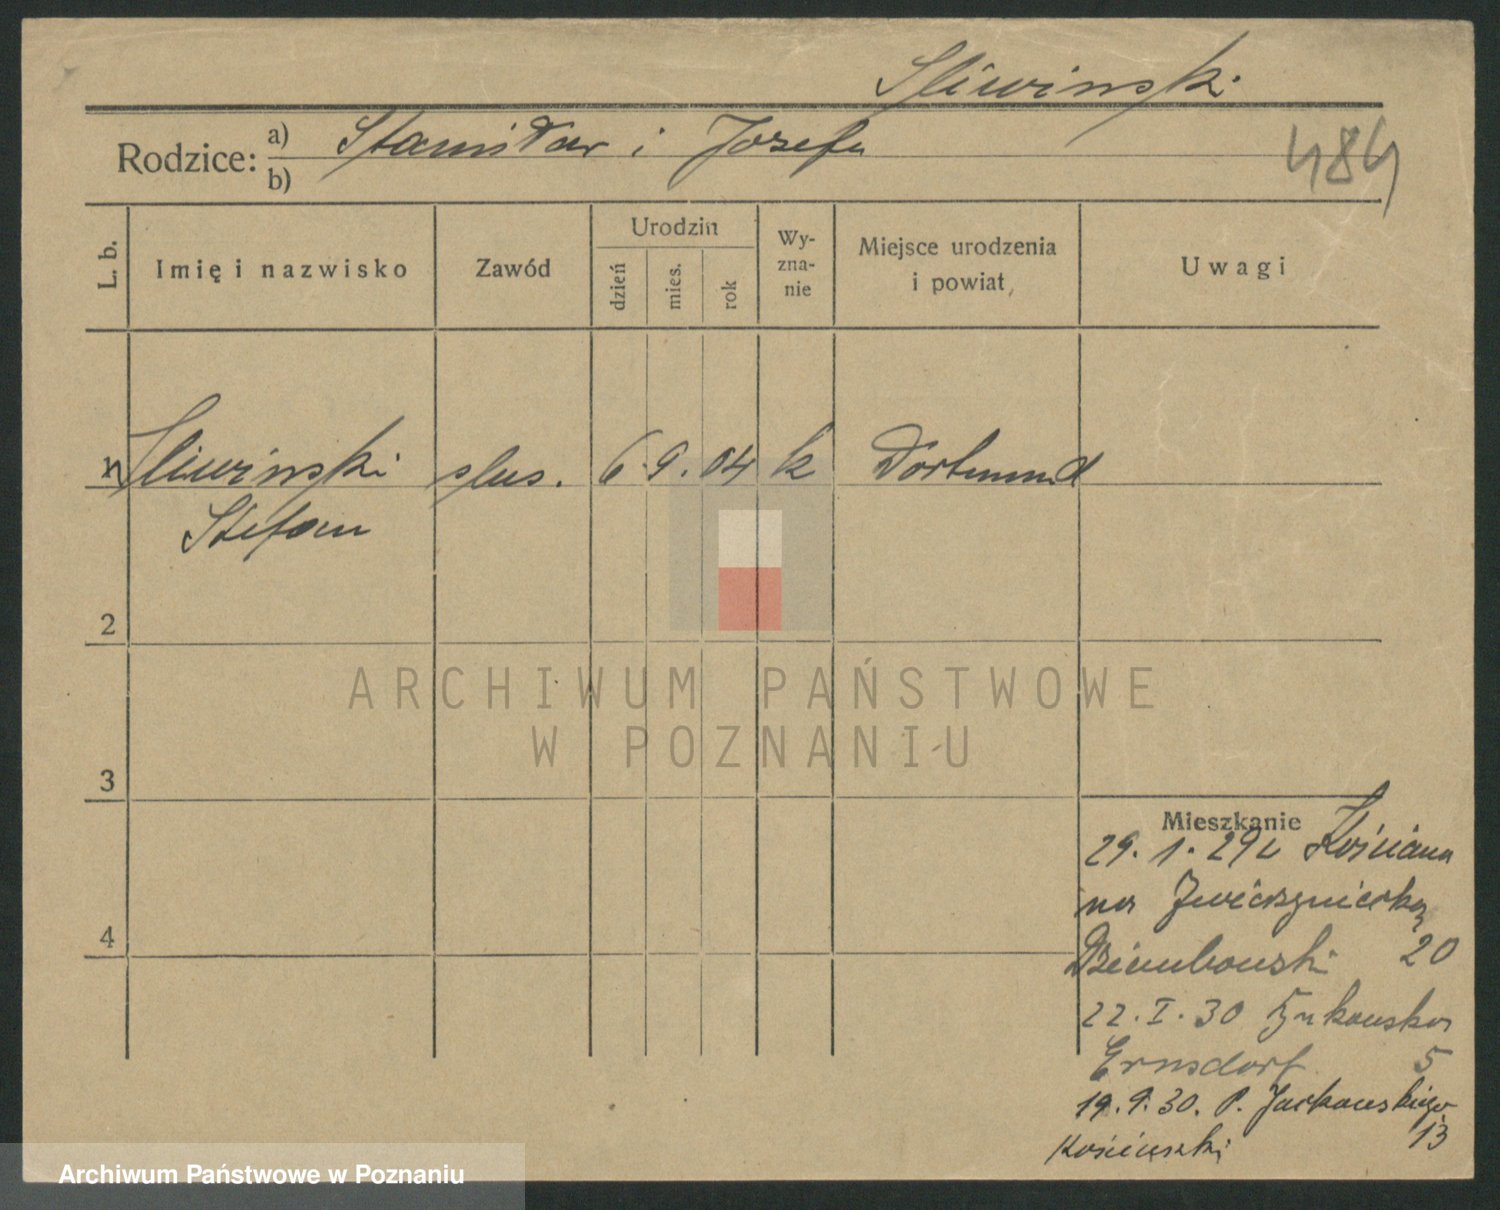 Sliwinski
Rodzice: a) Stanisław i Jozefa
b)
484
L. b.
Imię i nazwisko
Zawód
Urodzin
dzień
mies.
rok
Wy-
zna-
nie
Miejsce urodzenia
i powiat
Uwagi
1 Sliwinski slus. 6. 9. 04 k Dortmund
Stefan
2
3
4
Mieszkanie
29. 1. 29 z Kościana
na Zwierzyniecką
Dziembowski 20
22. I. 30
Ernsdorf 5
19. 9. 30. P. Jackowskiego
13
ARCHIWUM PAŃSTWOWE
W POZNANIU
Archiwum Państwowe w Poznaniu